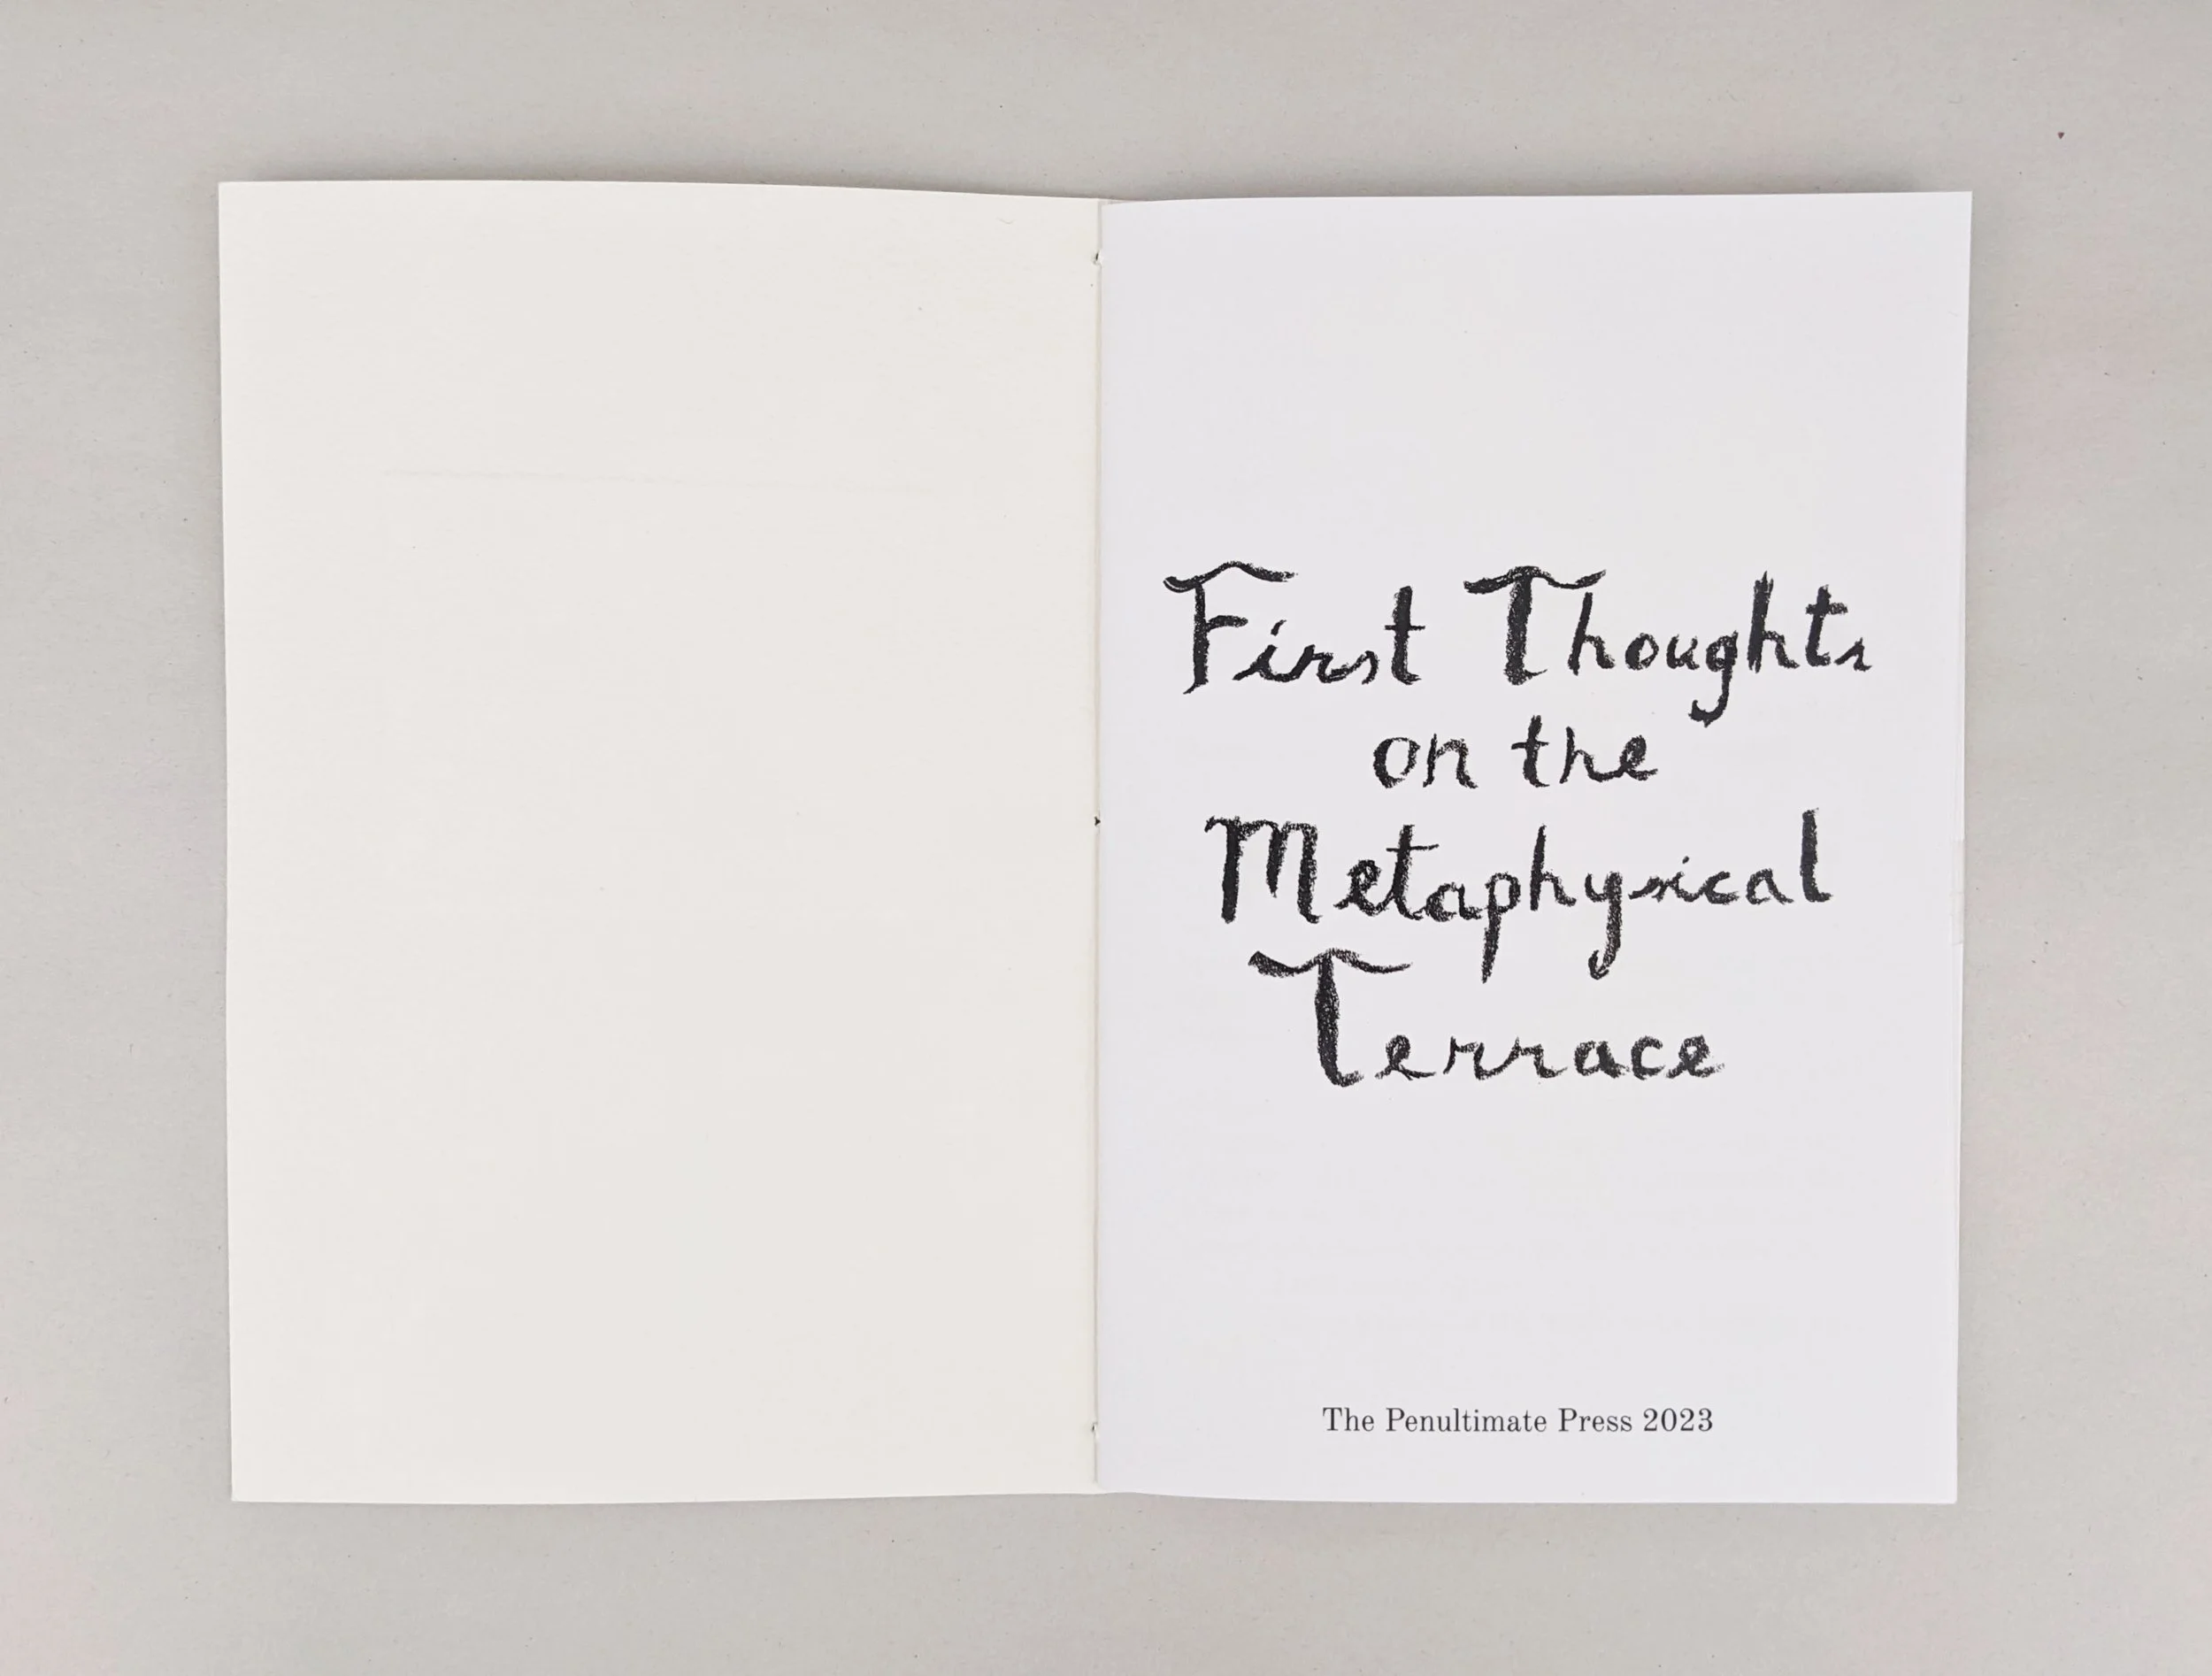 First Thoughts
on the
Metaphysical
Terrace
The Penultimate Press 2023